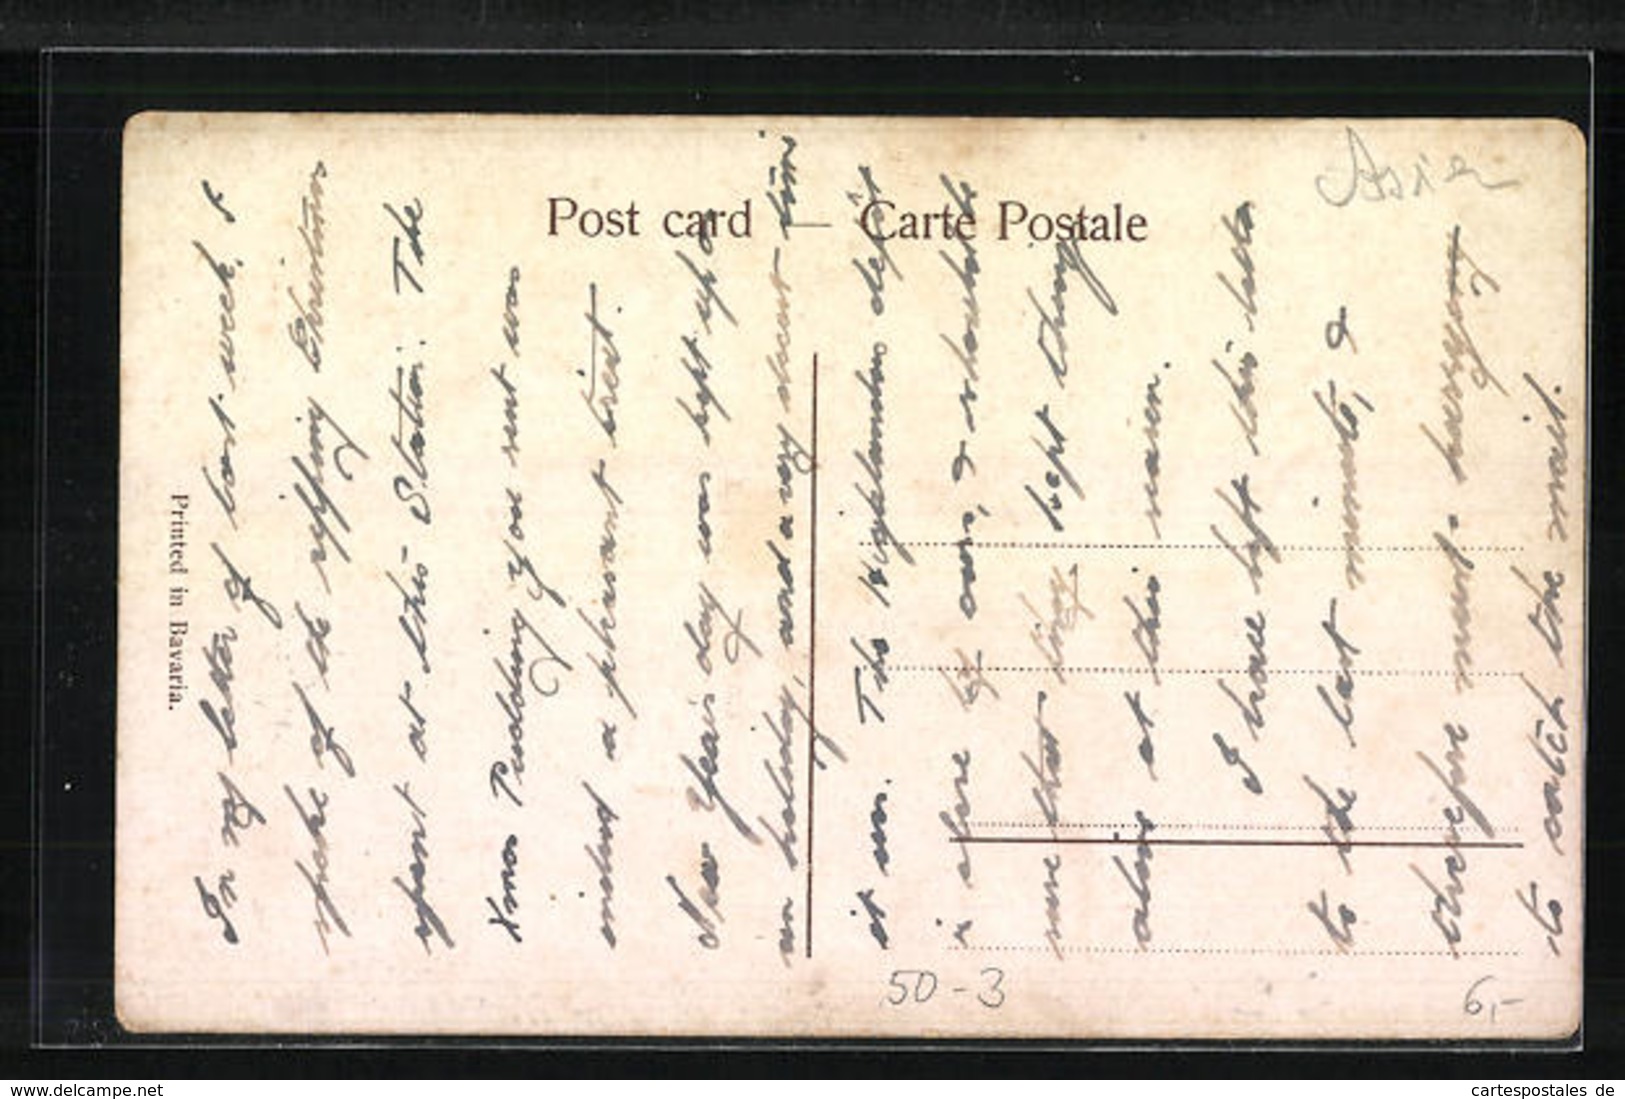 Post card — Carte Postale
Printed in Bavaria.
Asien
In my letter of last week, I
spoke of the ripping Christmas
spent at this Station. The
Xmas Pudding you sent was
indeed a pleasant treat.
New Years day was kept up a
a holiday, and a very decent time
it was. The Highlanders depôt
is here by ours, &
mure that they kept things
alive at this season.
I have left this letter
to the last minute, &
therefore must hurry
to catch the mail.
50-3
6,-
www.delcampe.net
cartespostales de